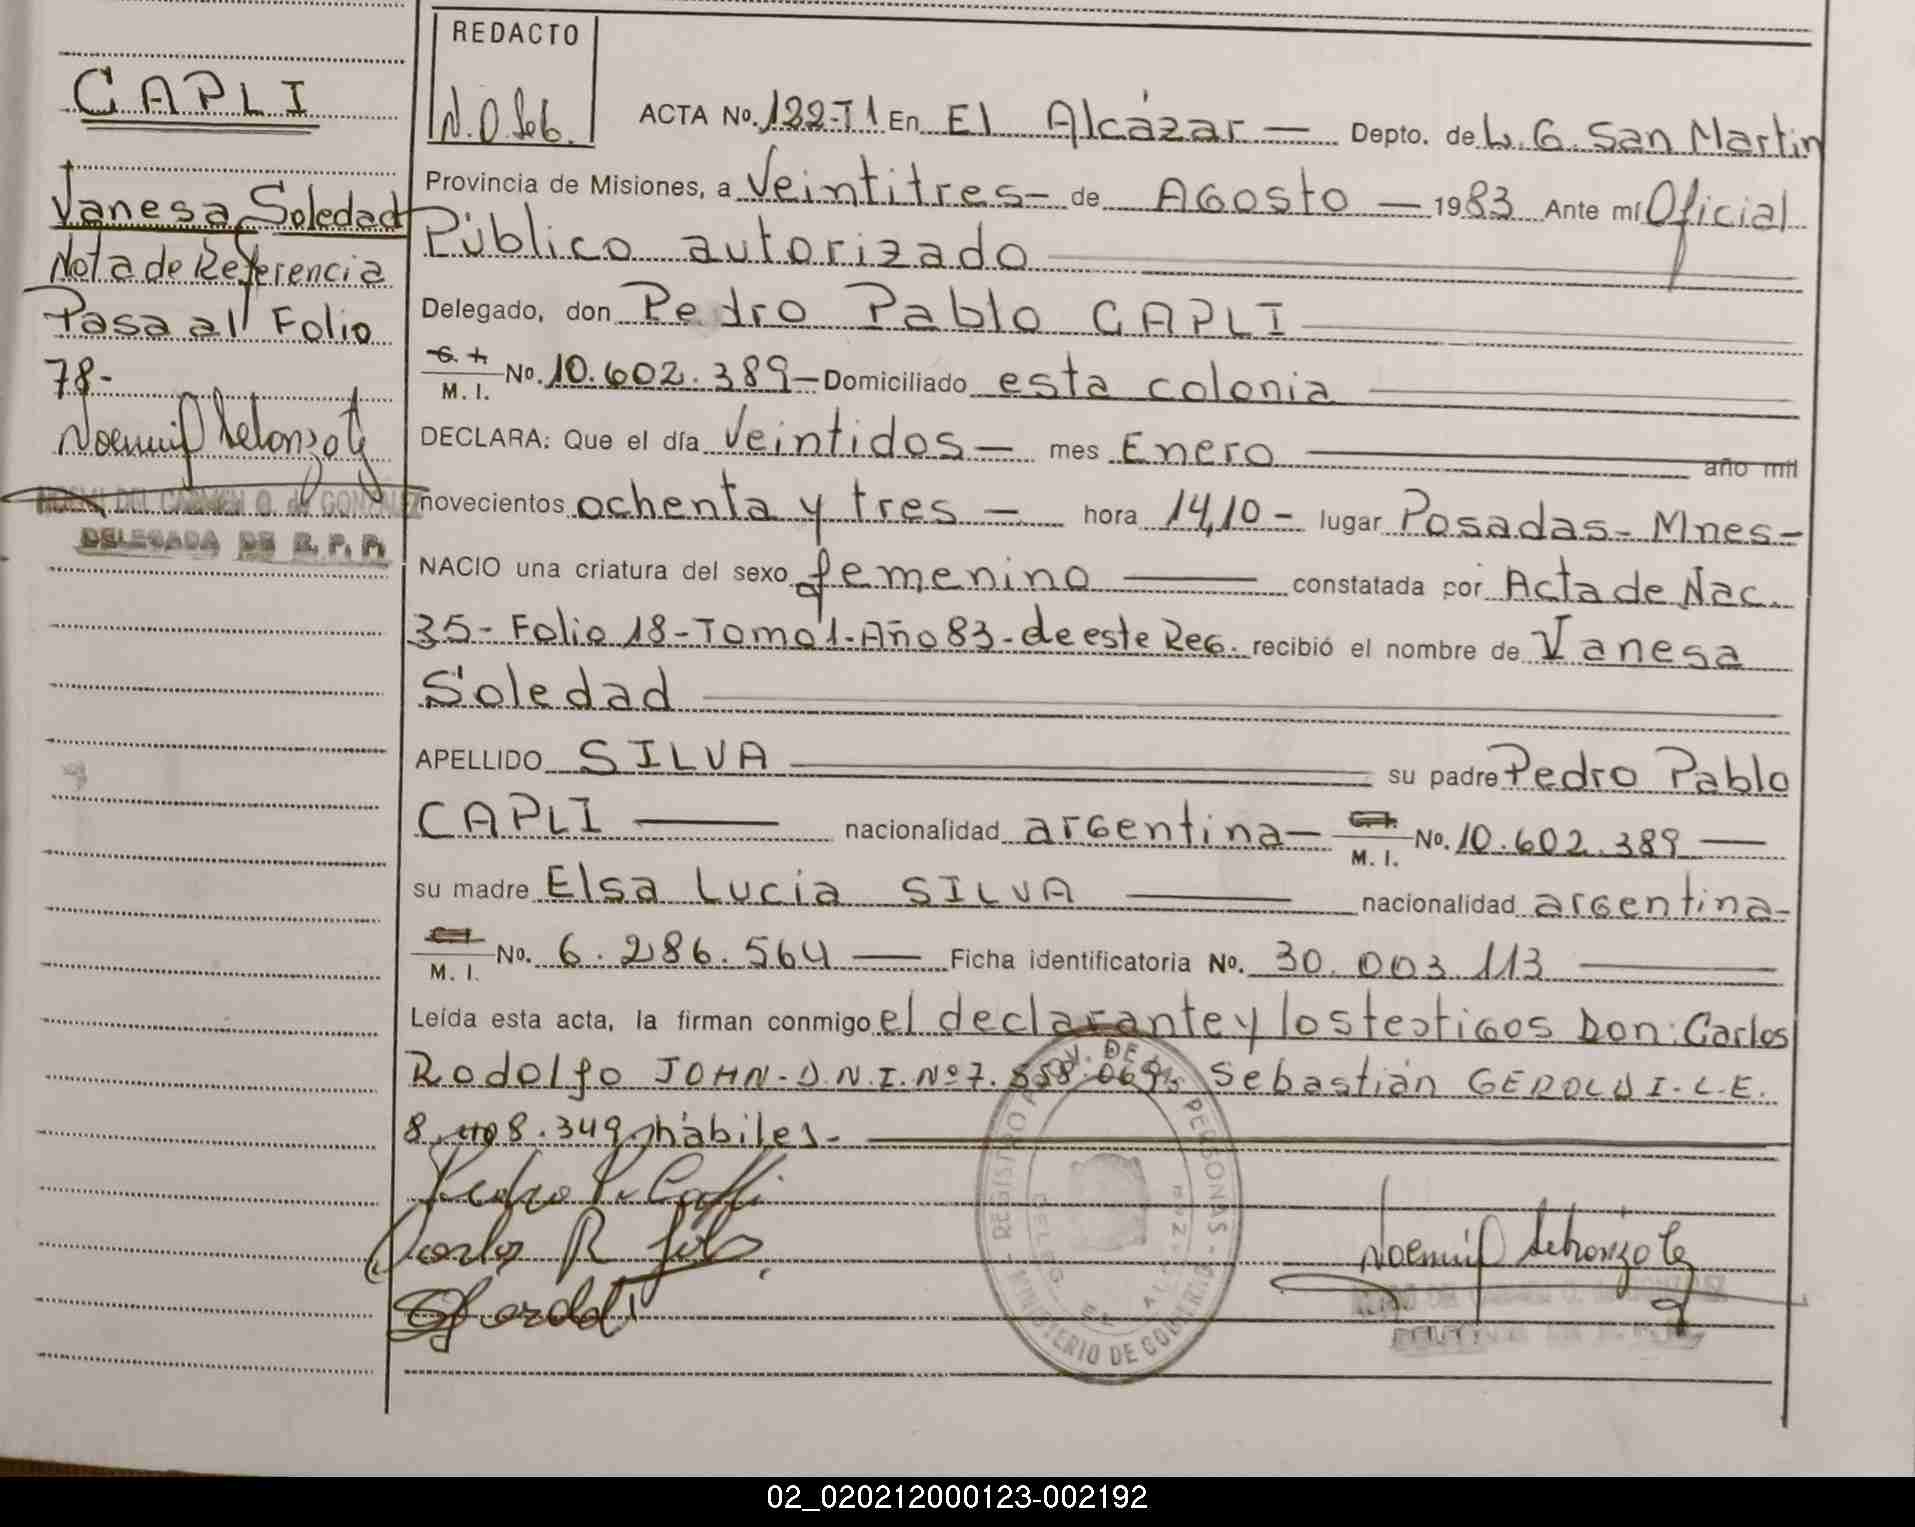 CAPLI
Vanesa Soledad
Nota de Referencia
Pasa al Folio
78-
NOEMI DEL CARMEN O. de GONZALEZ
DELEGADA DE R. P. P.
REDACTO
N.O.
ACTA No. 122-T1 En El Alcázar — Depto. de L. G. San Martin
Provincia de Misiones, a Veintitres — de Agosto — 1983 Ante mí Oficial
Público autorizado
Delegado, don Pedro Pablo CAPLI
M. I. No. 10.602.389 — Domiciliado esta colonia
DECLARA: Que el día Veintidos — mes Enero — año mil
novecientos ochenta y tres — hora 14,10 - lugar Posadas - Mnes -
NACIO una criatura del sexo femenino — constatada por Acta de Nac.
35 - Folio 18 - Tomo 1 - Año 83 - de este Reg. recibió el nombre de Vanesa
Soledad
APELLIDO SILVA — su padre Pedro Pablo
CAPLI — nacionalidad argentina — C.I. M. I. No. 10.602.389 —
su madre Elsa Lucia SILVA — nacionalidad argentina -
C.I. M. I. No. 6.286.564 — Ficha identificatoria No. 30.003.113 —
Leída esta acta, la firman conmigo el declarante y los testigos Don: Carlos
Rodolfo JOHN - D.N.I. Nº 7.558.069, Sebastián GEROLDI - L.E.
8.349, hábiles. -
Pedro P. Capli
Carlos R John
REGISTRO PROV. DE LAS PERSONAS - MINISTERIO DE GOBIERNO
DELEG. EL ALCAZAR